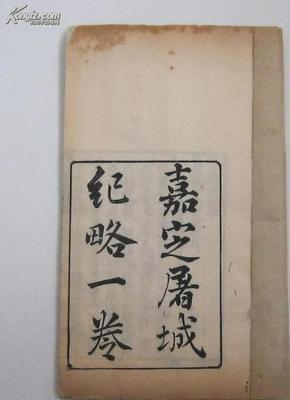 Kongfz.com
孔夫子旧书网
嘉定屠城
紀略一卷